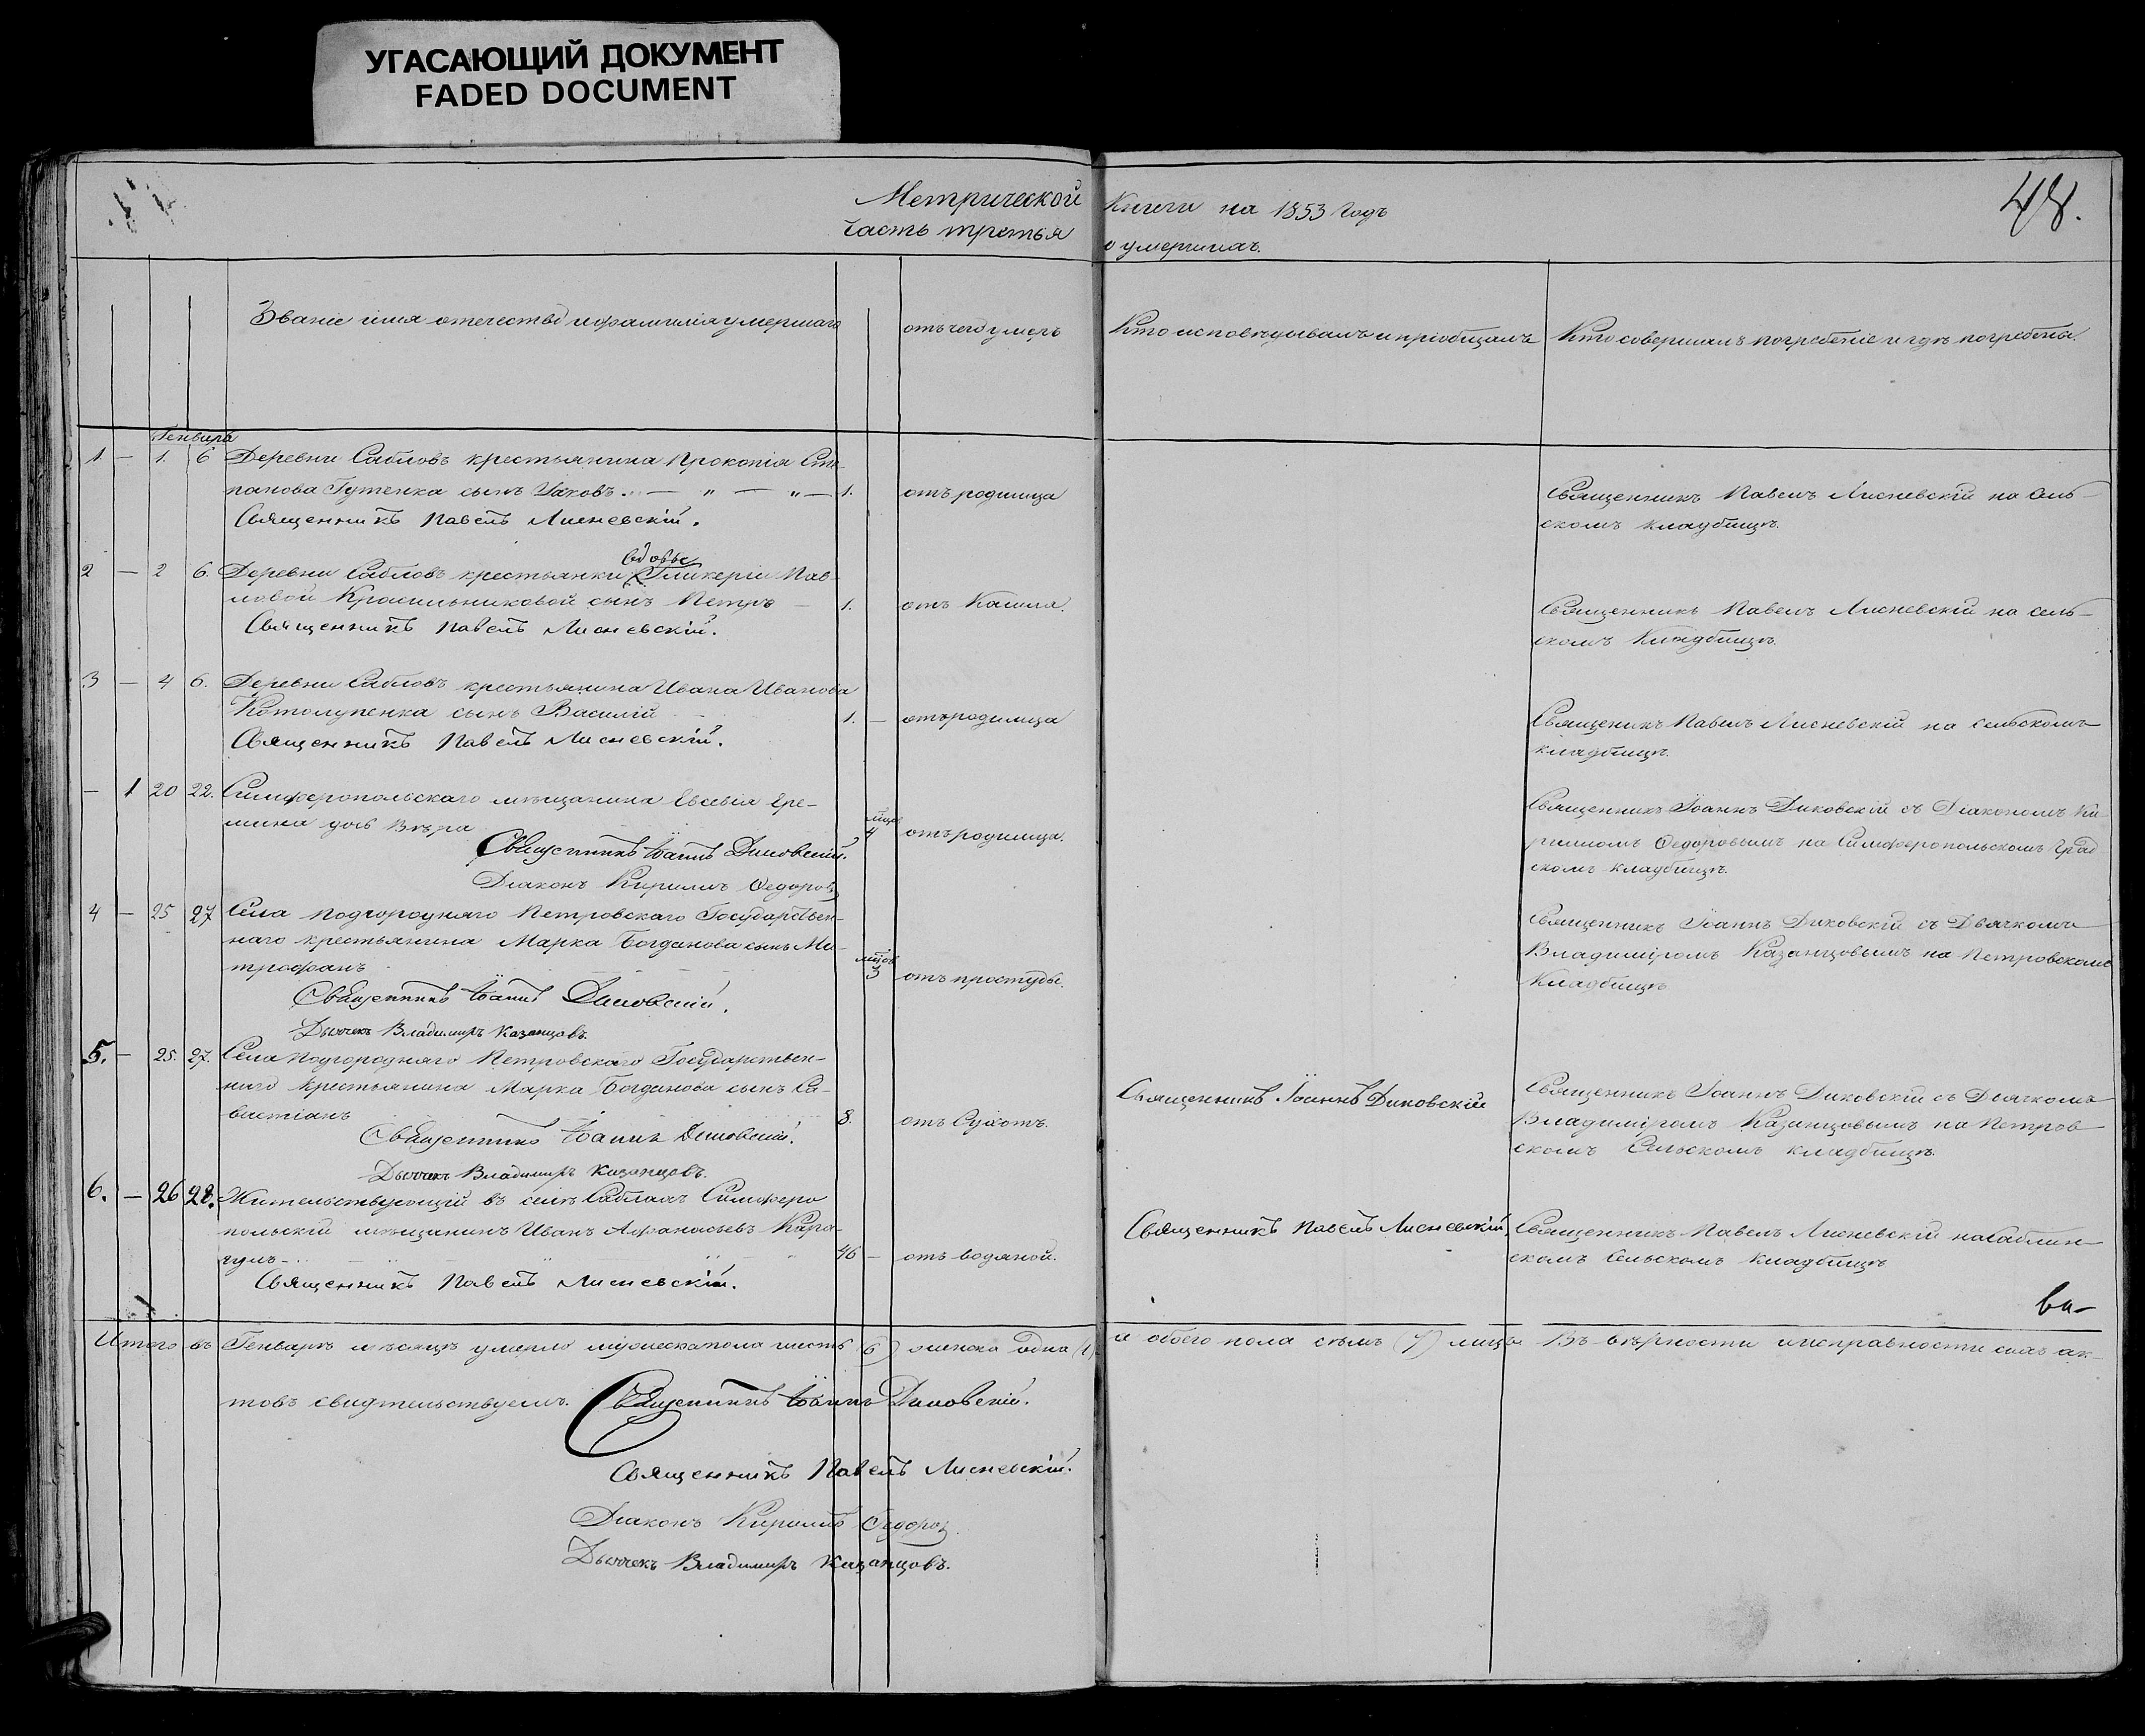 УГАСАЮЩИЙ ДОКУМЕНТ
FADED DOCUMENT
Метрической Книги на 1853 Годъ
48.
Часть третья о умершихъ.
Званіе имя отечество и фамилія умершаго
отъ чего умеръ
Кто исповѣдывалъ и пріобщалъ
Кто совершалъ погребеніе и гдѣ погребены.
Генваря
1 — 1. 6 Деревни Сабловъ крестьянина Прокопія Сте-
панова Гутенка сынъ Іаковъ. — " — " — 1. отъ родимца
Священникъ Павелъ Лисневскій.
Священникъ Павелъ Лисневскій на сель-
скомъ кладбищѣ.
вдовы
2 — 2 6. Деревни Сабловъ крестьянки Гликеріи Пав-
ловой Красильниковой сынъ Петръ — 1. отъ Кашля.
Священникъ Павелъ Лисневскій.
Священникъ Павелъ Лисневскій на сель-
скомъ Кладбищѣ.
3 — 4 6. Деревни Сабловъ крестьянина Ивана Иванова
Котолупенка сынъ Василій 1. — отъ родимца
Священникъ Павелъ Лисневскій.
Священикъ Павелъ Лисневскій на сельскомъ
кладбищѣ.
— 1 20 22. Симферопольскаго мѣщанина Евсевія Ере-
мина дочь Вѣра 4 отъ родимца.
Священникъ Іоаннъ Диковскій.
Діаконъ Кириллъ Федоровъ
Священникъ Іоаннъ Диковскій съ Діакономъ Ки-
рилломъ Федоровымъ на Симферопольскомъ Град
скомъ кладбищѣ.
4 — 25 27 Села Подгородняго Петровскаго Государствен-
наго крестьянина Марка Богданова сынъ Ми-
трофанъ 3 отъ простуды.
Священникъ Іоаннъ Диковскій.
Дьячекъ Владимиръ Казанцовъ.
Священникъ Іоаннъ Диковскій съ Дьячкомъ
Владиміромъ Казанцовымъ на Петровскомъ
Кладбищѣ
5. — 25. 27. Села Подгородняго Петровскаго Государствен-
наго Крестьянина Марка Богданова сынъ Са-
вастіанъ 8. отъ Сухотъ.
Священникъ Іоаннъ Диковскій.
Дьячекъ Владимиръ Казанцовъ.
Священникъ Іоаннъ Диковскій
Священникъ Іоаннъ Диковскій съ Дьячкомъ
Владиміромъ Казанцовымъ на Петров
скомъ Сельскомъ кладбищѣ.
6. — 26 28. Жительствующій въ селѣ Саблахъ Симферо
польскій мѣщанинъ Иванъ Афанасьевъ Кара-
46 — отъ водяной.
Священникъ Павелъ Лисневскій.
Священникъ Павелъ Лисневскій.
Священникъ Павелъ Лисневскій на Саблин-
скомъ Сельскомъ Кладбищѣ
Итого въ Генварѣ мѣсяцѣ умерло мужеска пола шесть (6) женска одна (1) а обоего пола семь (7) лицъ. Въ вѣрности и исправности сихъ ак-
товъ свидѣтельствуемъ. Священникъ Іоаннъ Диковскій.
Священникъ Павелъ Лисневскій.
Діаконъ Кириллъ Федоровъ
Дьячекъ Владимиръ Казанцовъ.